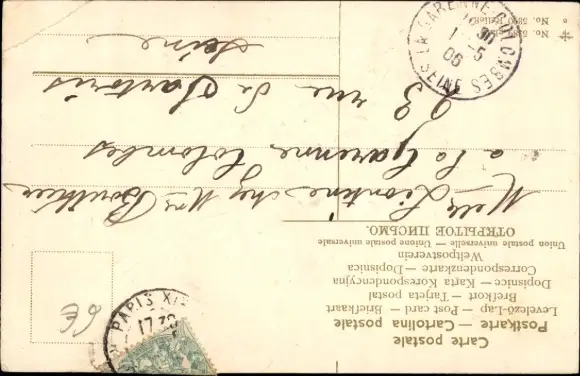 Carte postale
Postkarte — Cartolina postale
Levelező-Lap — Post card — Briefkaart
Brefkort — Tarjeta postal
Dopisnice — Karta Korespondencyjna
Correspondenzkarte — Dopisnica
Weltpostverein
Union postale universelle — Unione postale universale
ОТКРЫТОЕ ПИСЬМО.
PARIS XI
17 30
6€
Melle Léontine chez Mme Bouthier
a La Garenne Colombes
23 rue de Sartoris
Seine
LA GARENNE-COLOMBES
30
1 -5
06
SEINE
No. 5890